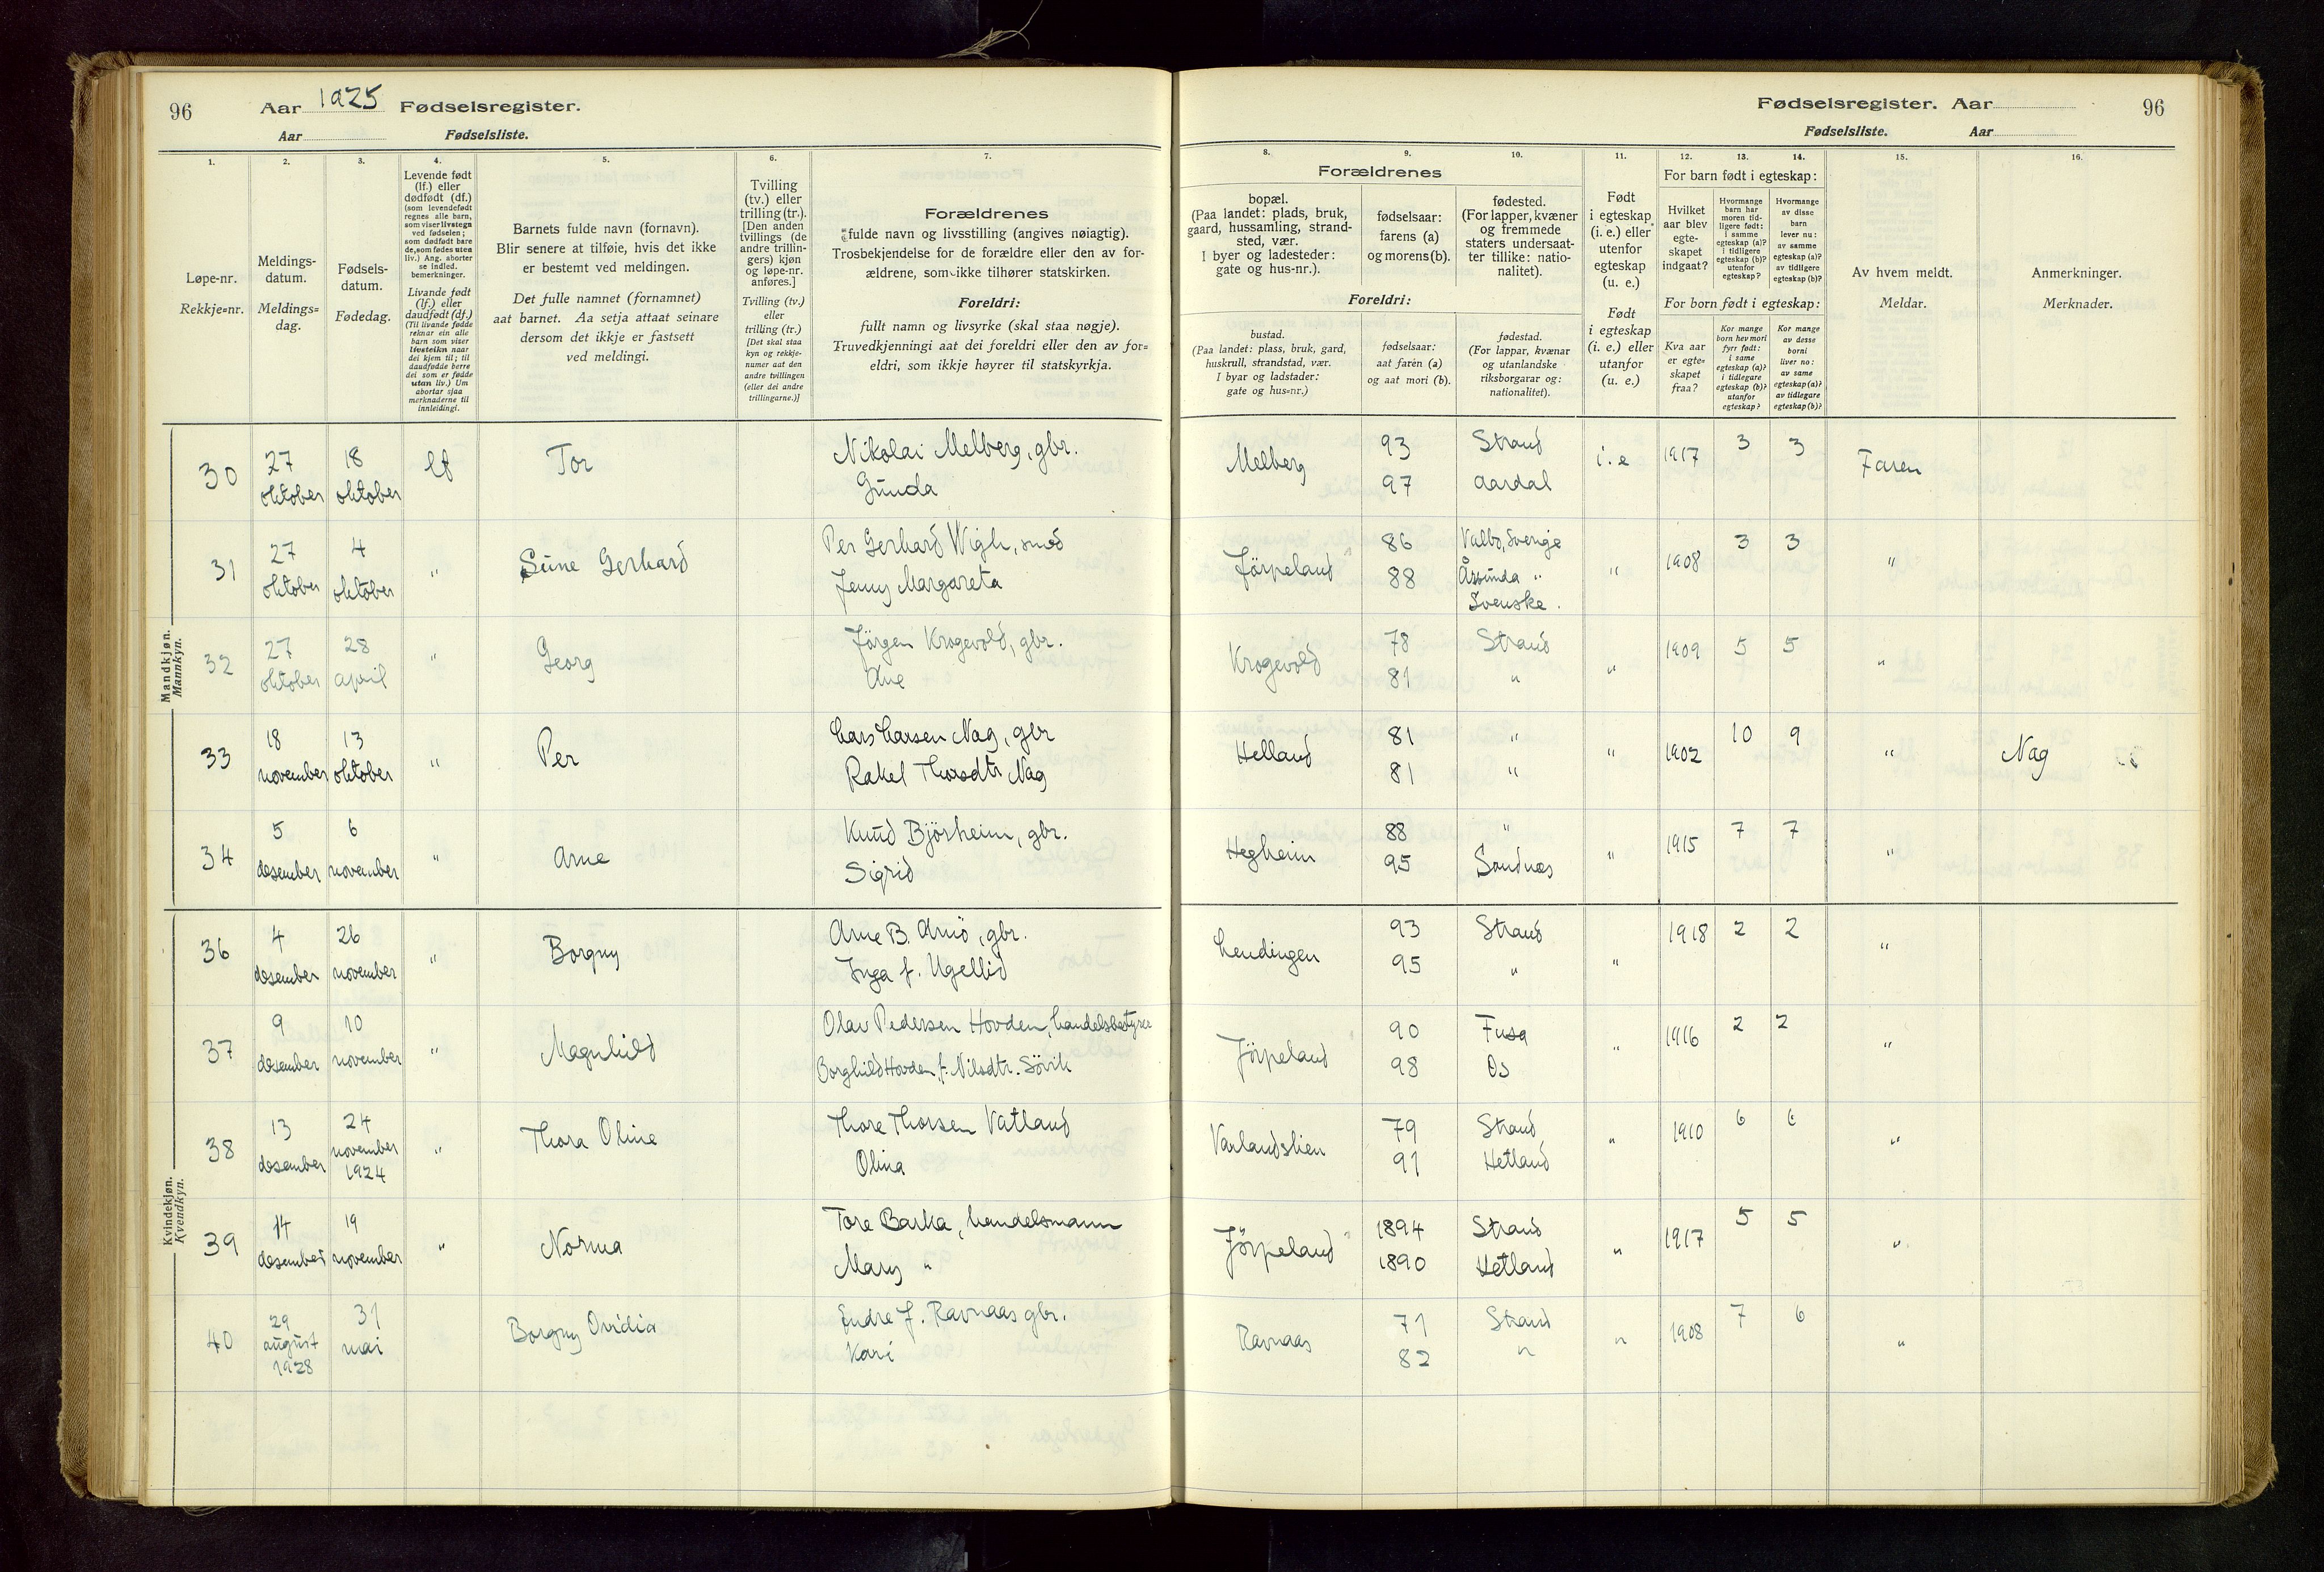 96 Aar 1925 Fødselsregister.
Aar Fødselsliste.
1. 2. 3. 4. 5. 6. 7.
Løpe-nr.
Rekkje=nr.
Meldings-
datum.
Meldings=
dag.
Fødsels-
datum.
Fødedag.
Levende født
(lf.) eller
dødfødt (df.)
(som levendefødt
regnes alle barn,
som viser livstegn
ved fødselen;
som dødfødt bare
de, som fødes uten
liv.) Ang. aborter
se indled.
bemerkninger.
Livande født
(lf.) eller
daudfødt (df.)
(Til livande fødde
reknar ein alle
barn som viser
livsteikn naar
dei kjem til; til
daudfødde berre
dei som er fødde
utan liv.) Um
abortar sjaa
merknaderne til
innleidingi.
Barnets fulde navn (fornavn).
Blir senere at tilføie, hvis det ikke
er bestemt ved meldingen.
Det fulle namnet (fornamnet)
aat barnet. Aa setja attaat seinare
dersom det ikkje er fastsett
ved meldingi.
Tvilling
(tv.) eller
trilling (tr.).
[Den anden
tvillings (de
andre trillin-
gers) kjøn
og løpe-nr.
anføres.]
Tvilling (tv.)
eller
trilling (tr.)
[Det skal staa
kyn og rekkje-
numer aat den
andre tvillingen
(eller dei andre
trillingarne.)]
Forældrenes
fulde navn og livsstilling (angives nøiagtig).
Trosbekjendelse for de forældre eller den av for-
ældrene, som ikke tilhører statskirken.
Foreldri:
fullt namn og livsyrke (skal staa nøgje).
Truvedkjenningi aat dei foreldri eller den av for=
eldri, som ikkje høyrer til statskyrkja.
Mandkjøn.
Mannkyn.
30 27 oktober 18 oktober lf Tor Nikolai Melberg, gbr.
Gunda
31 27 oktober 4 oktober " Sune Gerhard Per Gerhard Wigh, smed
Jenny Margareta
32 27 oktober 28 april " Georg Jörgen Krogevold, gbr.
Ane
33 18 november 13 oktober " Per Lars Larsen Nag, gbr
Rakel Thorsdtr Nag
34 5 desember 6 november " Arne Knud Björheim, gbr.
Sigrid
Kvindekjøn.
Kvendkyn.
36 4 desember 26 november " Borgny Arne B. Arnö, gbr.
Inga f. Ugellid
37 9 desember 10 november " Magnhild Olav Pedersen Hovden, handelsbestyrer
Borghild Hovden f. Nilsdtr. Sörvik
38 13 desember 24 november 1924 " Thora Oline Thore Thorsen Vatland
Olina
39 14 desember 19 november " Norma Tore Barka, handelsmann
Mary "
40 29 august 1928 31 mai Borgny Ovidia Endre J. Ravnaas gbr.
Kari
Fødselsregister. Aar 96
Fødselsliste. Aar
8. 9. 10. 11. 12. 13. 14. 15. 16.
Forældrenes
bopæl.
(Paa landet: plads, bruk,
gaard, hussamling, strand-
sted, vær.
I byer og ladesteder:
gate og hus-nr.).
fødselsaar:
farens (a)
og morens (b).
fødested.
(For lapper, kvæner
og fremmede
staters undersaat-
ter tillike: natio-
nalitet).
Foreldri:
bustad.
(Paa landet: plass, bruk, gard,
huskrull, strandstad, vær.
I byar og ladstader:
gate og hus=nr.)
fødselsaar:
aat faren (a)
og aat mori (b).
fødestad.
(For lappar, kvænar
og utanlandske
riksborgarar og:
nationalitet).
Født
i egteskap
(i. e.) eller
utenfor
egteskap
(u. e.)
Født
i egteskap
(i. e.) eller
utanfor
(u. e.)
For barn født i egteskap:
Hvilket
aar blev
egte-
skapet
indgaat?
Hvormange
barn har
moren tid-
ligere født:
i samme
egteskap (a)?
i tidligere
egteskap (b)?
utenfor
egteskap?
Hvormange
av disse
barn
lever nu:
av samme
egteskap (a)?
av tidligere
egteskap (b)?
For born født i egteskap:
Kva aar
er egte=
skapet
fraa?
Kor mange
born hev mori
fyrr født:
i same
egteskap (a)?
i tidlegare
egteskap (b)?
utanfor
egteskap?
Kor mange
av desse
borni
liver no:
av same
egteskap (a)?
av tidlegare
egteskap (b)?
Av hvem meldt.
Meldar.
Anmerkninger.
Merknader.
Melberg 93 Strand i.e 1917 3 3 Faren
97 Aardal
Jörpeland 86 Valbo, Sverige " 1908 3 3 "
88 Årsunda "
Svenske.
Krogevold 78 Strand " 1909 5 5 "
81 "
Helland 81 " " 1902 10 9 " Nag
81 "
Hegheim 88 " " 1915 7 7 "
95 Sandnes
Lendingen 93 Strand " 1918 2 2 "
95 "
Jörpeland 90 Fusa " 1916 2 2 "
98 Os
Varlandslien 79 Strand " 1910 6 6 "
91 Hetland
Jörpeland 1894 Strand " 1917 5 5 "
1890 Hetland
Ravnaas 71 Strand " 1908 7 6 "
82 "